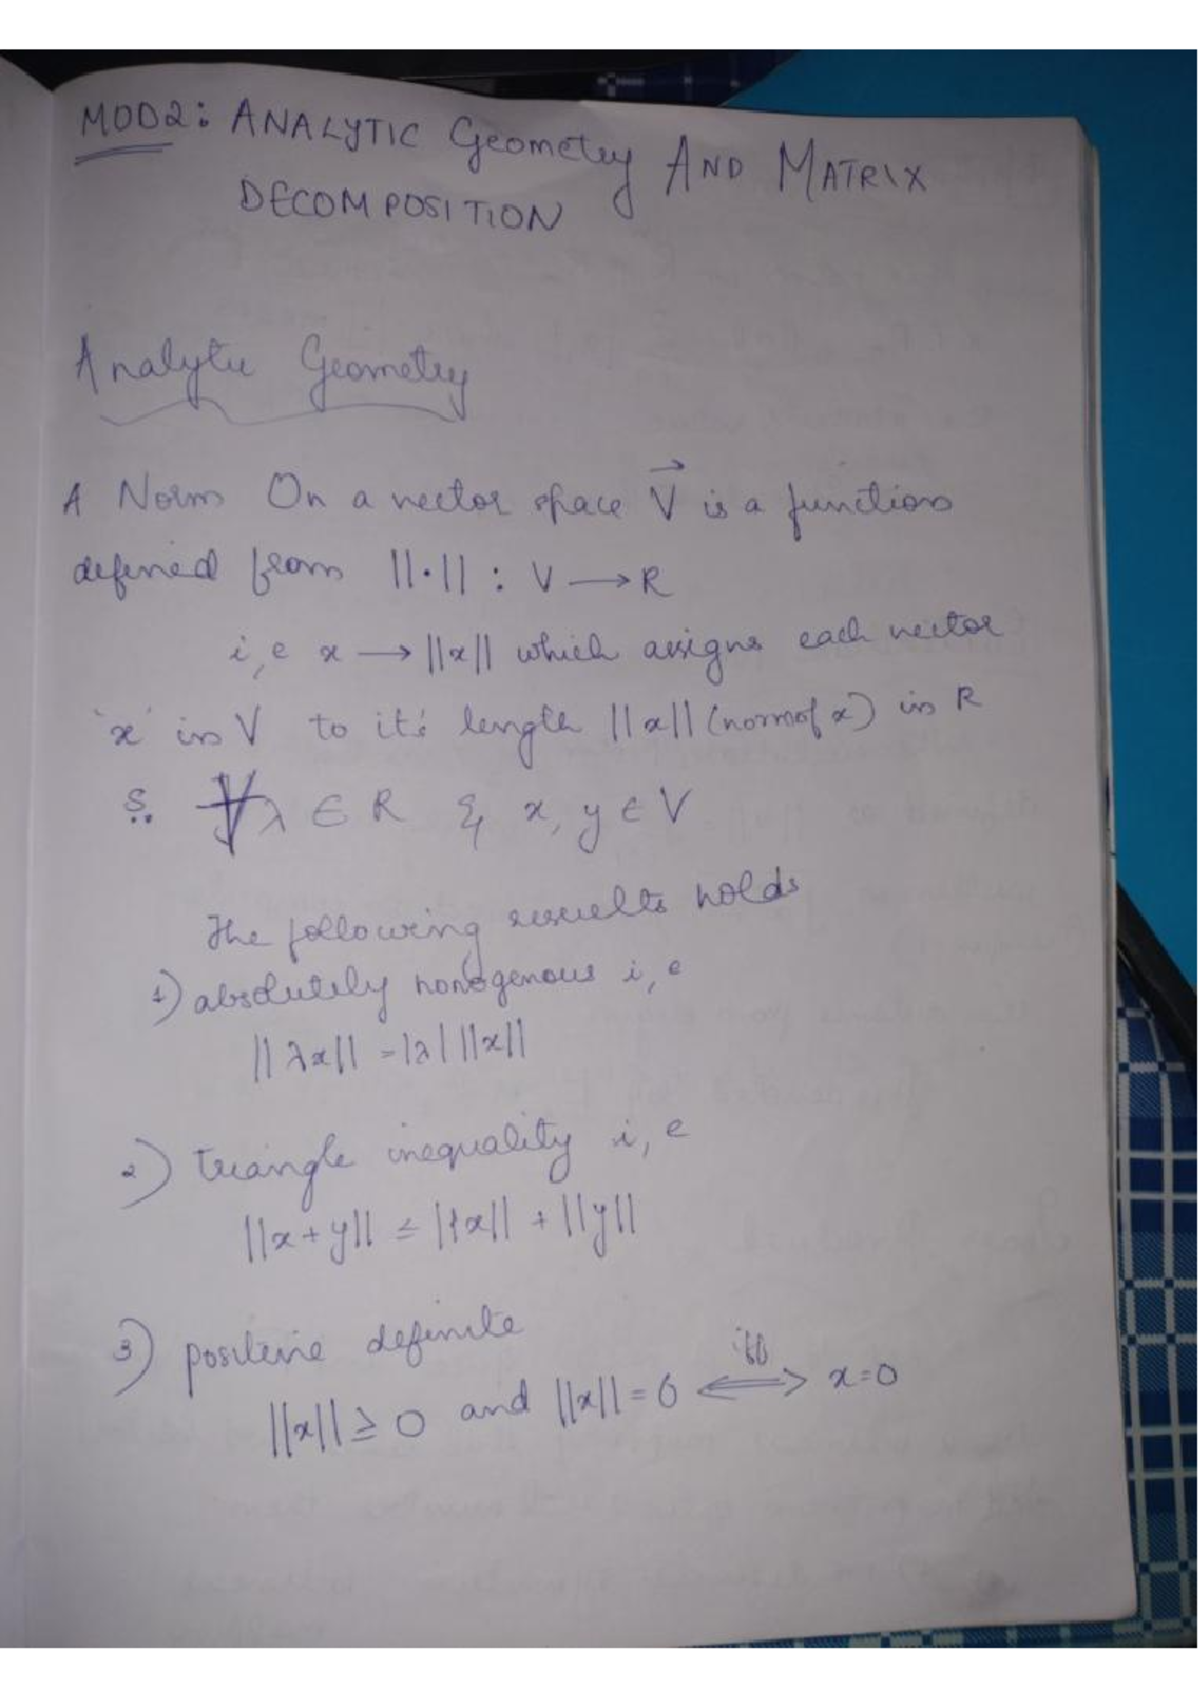 MOD2: ANALYTIC Geometry AND MATRIX
DECOMPOSITION
Analytic Geometry
A Norm On a vector space V⃗ is a function
defined from ||·|| : V → R
i,e x → ||x|| which assigns each vector
'x' in V to it's length ||x|| (norm of x) in R
S.. ∀ λ ∈ R & x, y ∈ V
The following results holds
1) absolutely homogenous i,e
|| λx|| = |λ| ||x||
2) triangle inequality i,e
||x+y|| ≤ ||x|| + ||y||
3) positive definite
iff
||x|| ≥ 0 and ||x|| = 0 ⟺ x=0